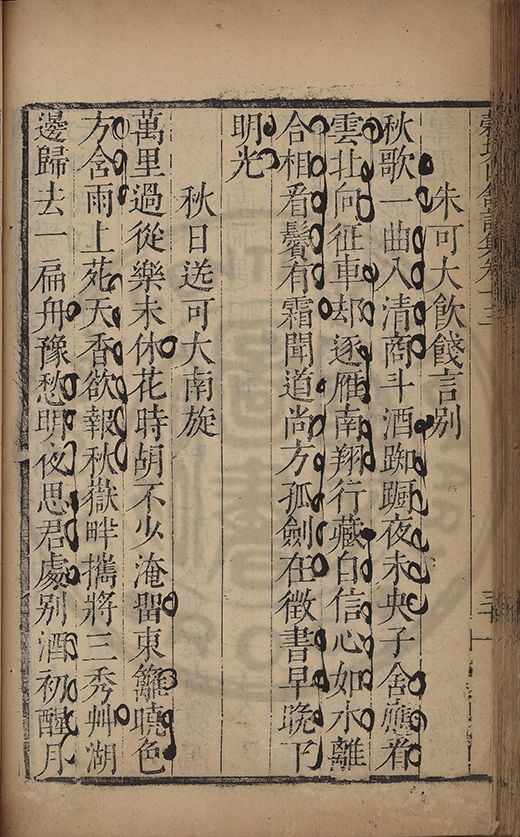 朱可大飲餞言別
秋歌一曲入清商斗酒踟躕夜未央子舍應看
雲北向征車却逐雁南翔行藏自信心如水離
合相看鬢有霜聞道尚方孤劍在徵書早晚下
明光
秋日送可大南旋
萬里過從樂未休花時胡不少淹留東籬曉色
方含雨上苑天香欲報秋嶽畔攜將三秀艸湖
邊歸去一扁舟豫愁明夜思君處別酒初醒月